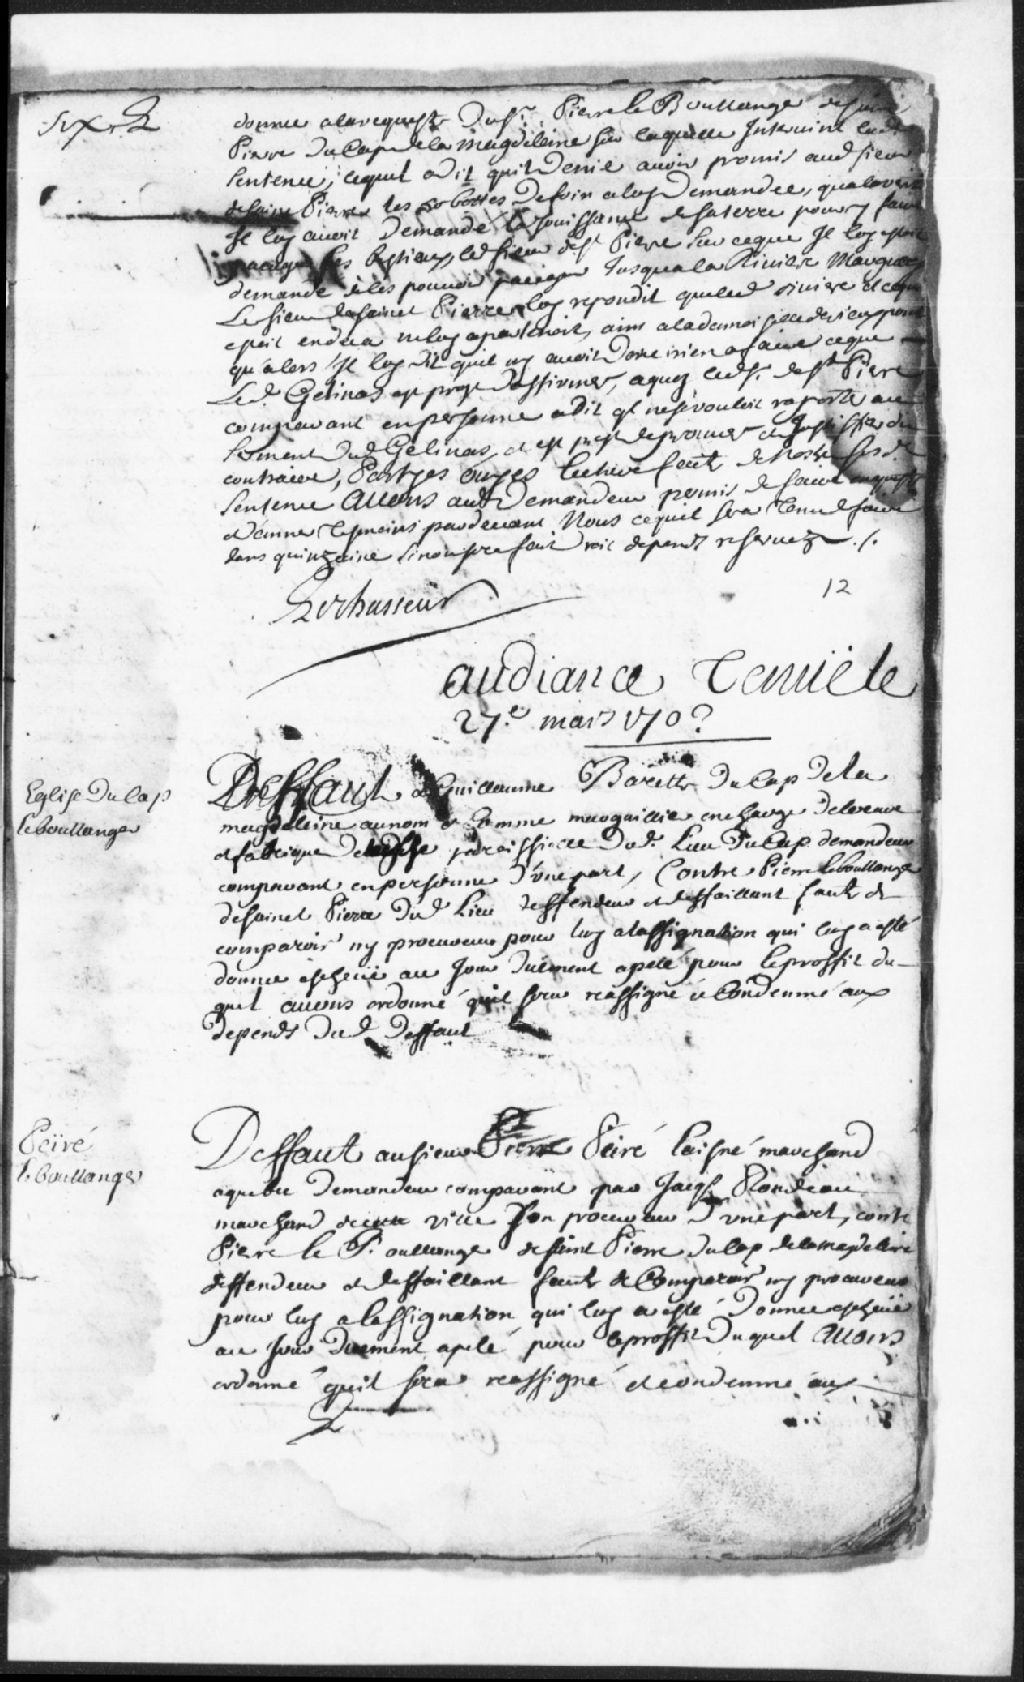 Six
donnee a la requeste du Sr. Pierre le Boullanger de saint
Pierre du Cap de la Magdeleine sur laquelle Intervint lad.
Sentence, lequel a dit quil denie avoir promis aud sieur
de saint Pierre les bottes de foin a luy demandee, qualavoir
Il luy avoit demandé la Jouissance de sa terre pour y faire
ses bestiaux led sieur de St Pierre sur ceque Il luy
demandé de les pouvoir Jusqua la Riviere
Le Sieur de Saint Pierre luy repondit que lad riviere
endela ne luy apartenoit, ains a la
qu'alors Il luy dit quil ny avoit donc rien a faire ceque
Led. Gelinas est prest d'affirmer, a quoy led. Sr. de St Pierre
comparant en personne a dit ql ne sen vouloit raporter au
serment dud Gelinas, et est prest de prouver et Justiffier du
contraire, Partyes ouyes lecture faite de Nostre susd.
Sentence Avons audt Demandeur permis de faire enqueste
et donner Tesmoins pardevant Nous cequil sera Tenu de faire
dans quinzaine sinon sera fait droit depends reservez ./.
12
audiance Tenüe le
27.e mars 170?
Eglise du Cap
le boullanger
Deffaut a Guillaume Barette du Cap de la
magdeleine au nom et comme marguillier en charge de l'œuvre
et fabrique de leglise parroissialle dud. Lieu du Cap demandeur
comparant en personne d'une part, Contre Pierre le boullanger
de saint Pierre dud Lieu deffendeur et deffaillant faute de
comparoir ny procureur pour luy a lassignation qui luy a esté
donnee escheüe au Jour duëment apelé pour le proffit du-
quel avons ordonné quil sera reassigné et Condemné aux
depends dud deffaut
Peiré
le boullanger
Deffaut au sieur Pierre Peiré laisné marchand
a quebec Demandeur comparant par Jacqs Rondeau
marchand de cette ville son procureur d'une part, contre
Pierre le Boullanger de saint Pierre du Cap de la magdelaine
deffendeur et deffaillant faute de Comparoir ny procureur
pour luy a lassignation qui luy a esté Donnee escheüe
au Jour duement apelé pour le proffit Duquel Avons
ordonné quil sera reassigné et condemné aux